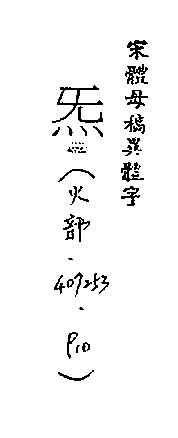 宋體母稿異體字
炁（火部．409253．P10）